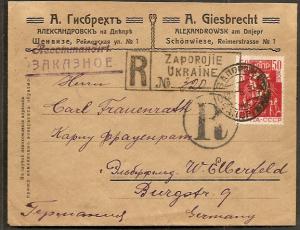 А. Гисбрехтъ
АЛЕКСАНДРОВСКЪ на Днѣпрѣ
Шенвизе, Реймерская ул. № 1
A. Giesbrecht
ALEXANDROWSK am Dnjepr
Schönwiese, Reimerstrasse № 1
ЗАКАЗНОЕ
R
ZAPOROJIE
UKRAÏNE
№
Herrn
Carl Frauenrath
Карлу Фрауенрат
R
Эльберфельд W. Elberfeld
Burgstr. 9
Германия
Germany
50
СССР